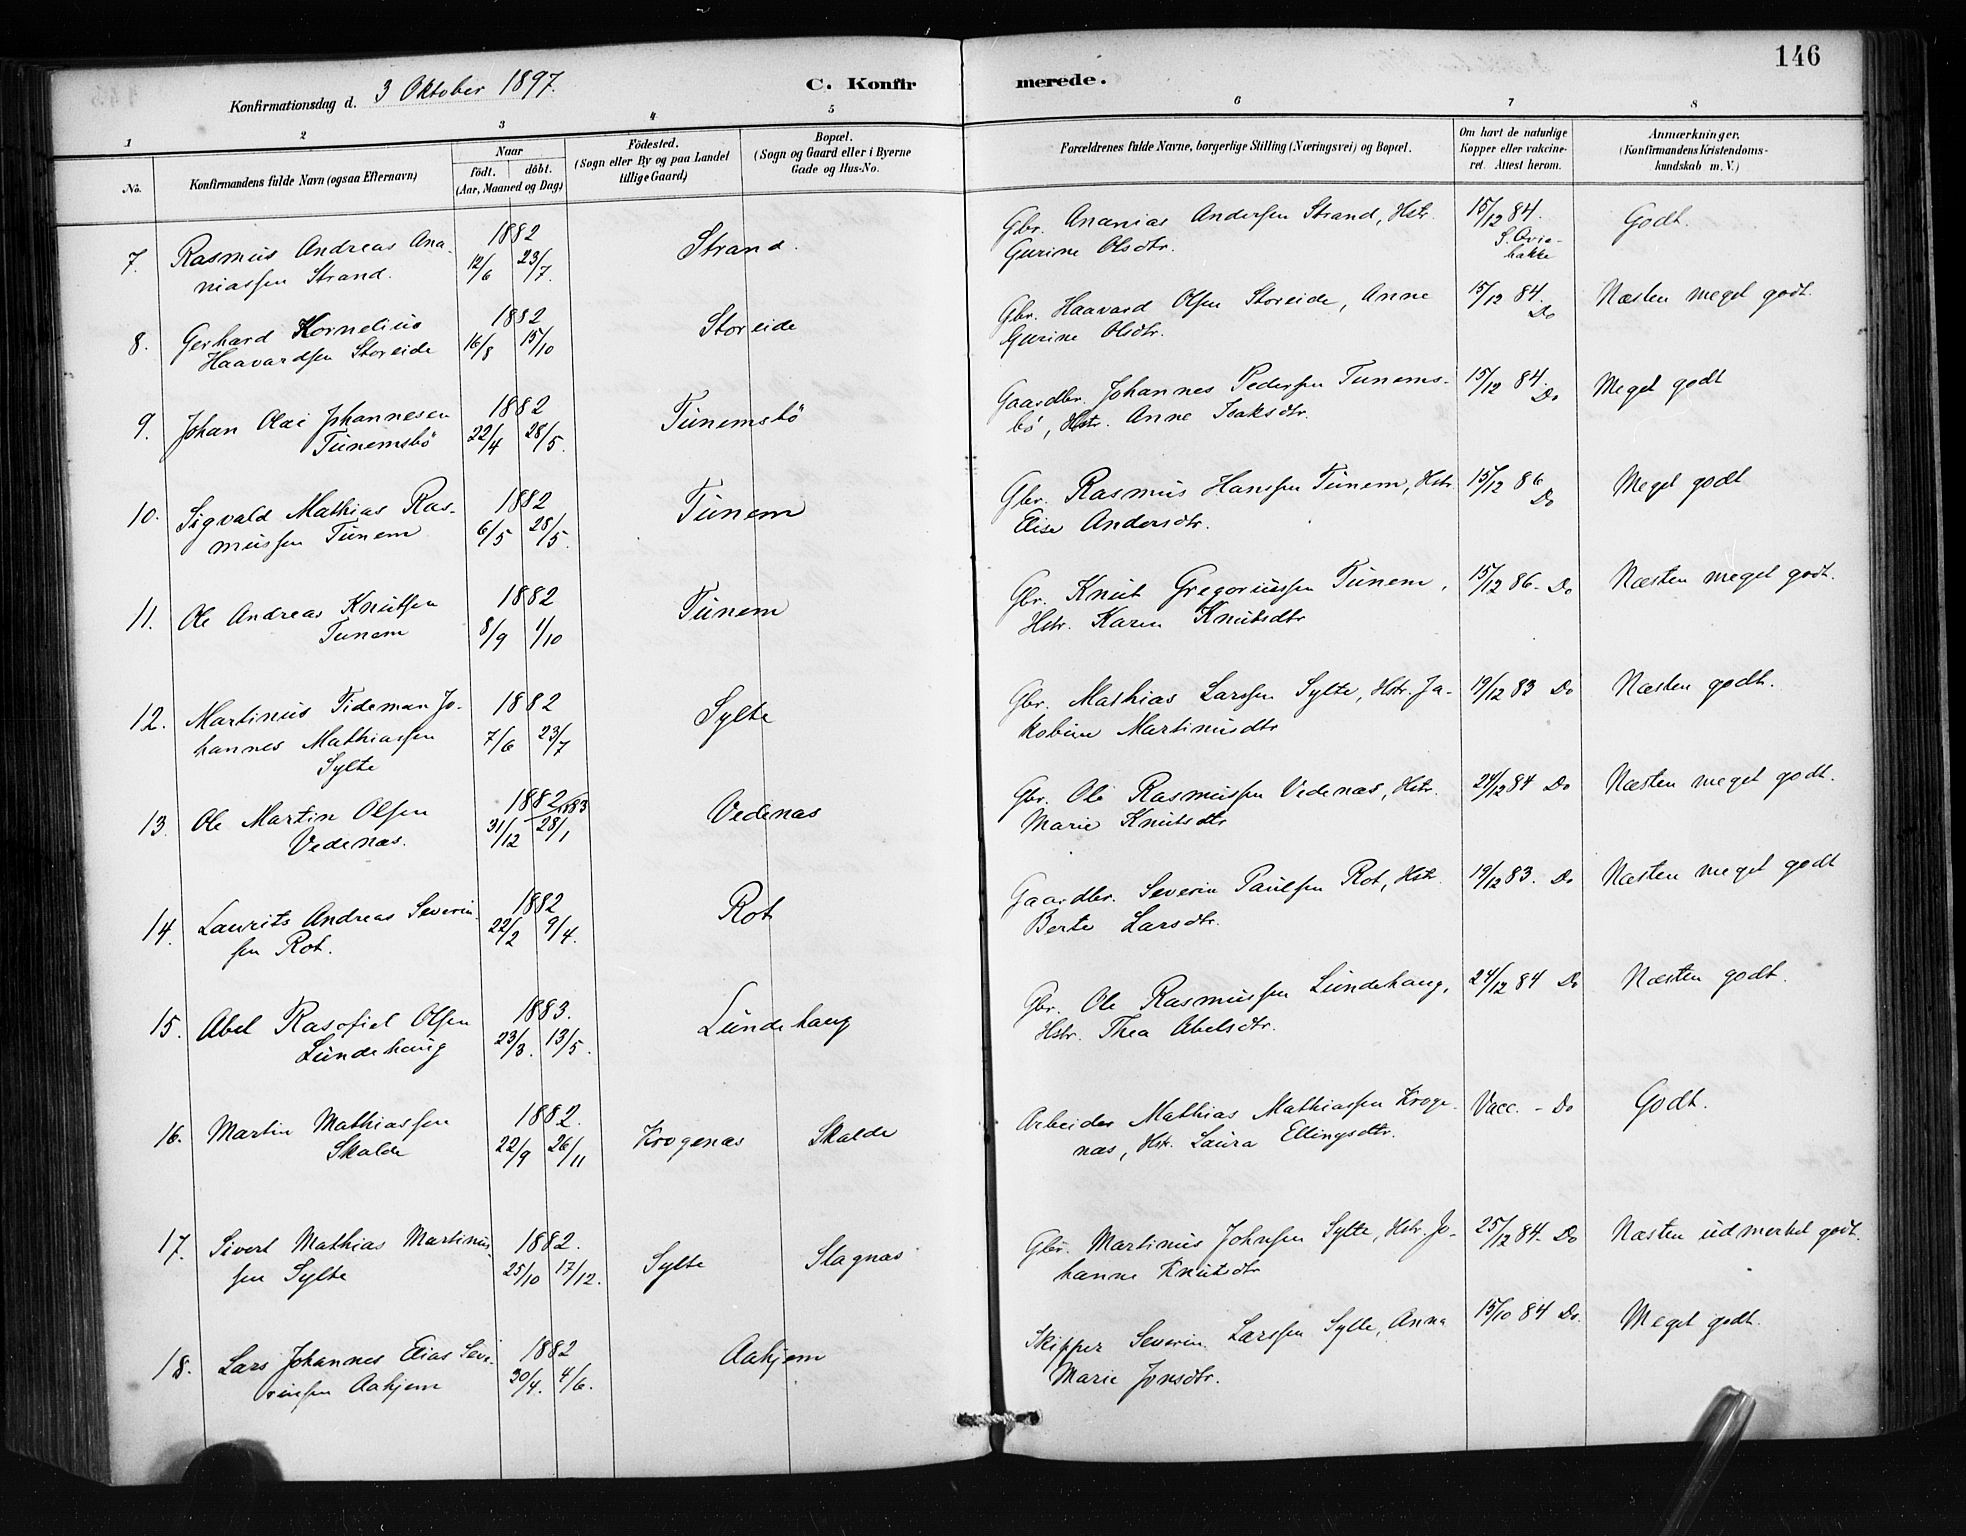 146
Konfirmationsdag d. 3 Oktober 1897.
C. Konfirmerede.
1 2 3 4 5 6 7 8
No.
Konfirmandens fulde Navn (ogsaa Efternavn)
Naar
født. døbt.
(Aar, Maaned og Dag)
Fødested.
(Sogn eller By og paa Landet
tillige Gaard)
Bopæl.
(Sogn og Gaard eller i Byerne
Gade og Hus-No.
Forældrenes fulde Navne, borgerlige Stilling (Næringsvei) og Bopæl.
Om havt de naturlige
Kopper eller vakcine-
ret. Attest herom.
Anmærkninger.
(Konfirmandens Kristendoms-
kundskab m. V.)
7. Rasmus Andreas Ana- 1882 Strand. Gbr. Ananias Andersen Strand, Hstr. 15/12 84. Godt.
niassen Strand. 12/6 23/7. Gurine Olsdtr.
8. Gerhard Kornelius 1882 Storeide Gbr. Haavard Olsen Storeide, Anne 15/12 84. Do Næsten meget godt.
Haavardsen Storeide 16/8 15/10 Gurine Olsdtr.
9. Johan Olai Johannesen 1882 Tunemsbö Gaardbr. Johannes Pedersen Tunems- 15/12 84. Do Meget godt
Tunemsbö 22/4 28/5. bö, Hstr. Anne Isaksdtr.
10. Sigvald Mathias Ras- 1882 Tunem Gbr. Rasmus Hanssen Tunem, Hstr. 15/12 86 Do Meget godt
mussen Tunem 6/5 28/5. Elise Andersdtr.
11. Ole Andreas Knutsen 1882 Tunem Gbr. Knut Gregoriussen Tunem, 15/12 86 - Do Næsten meget godt.
Tunem 8/9 1/10 Hstr. Karen Knutsdtr
12. Martinus Tideman Jo- 1882 Sylte Gbr. Mathias Larssen Sylte, Hstr. Ja- 19/12 83 Do Næsten godt.
hannes Mathiassen 7/6 23/7 kobine Martinusdtr
Sylte
13. Ole Martin Olsen 1882/1883 Vedenæs Gbr. Ole Rasmussen Vedenæs, Hstr. 24/12 84 Do Næsten meget godt.
Vedenæs. 31/12 28/1 Marie Knutsdtr
14. Laurits Andreas Severin- 1882 Rot Gaardbr. Severin Paulsen Rot, Hstr. 19/12 83. Do Næsten meget godt
sen Rot. 22/2 9/4. Berte Larsdtr.
15. Abel Rasofiel Olsen 1883. Lundehaug Gbr. Ole Rasmussen Lundehaug, 24/12 84 Do Næsten godt.
Lundehaug 23/3. 13/5. Hstr. Thea Abelsdtr.
16. Martin Mathiassen 1882. Krogenæs Skalde Arbeider Mathias Mathiassen Kroge- Vacc. - Do Godt.
Skalde 22/9 26/11 næs, Hstr. Laura Ellingsdtr.
17. Sivert Mathias Martinus- 1882. Sylte Slagnæs Gbr. Martinus Johnsen Sylte, Hstr. Jo- 25/12 84 - Do Næsten udmerket godt.
sen Sylte 25/10 17/12. hanne Knutsdtr
18. Lars Johannes Elias Seve- 1882 Aahjem Skipper Severin Larssen Sylte, Anna 15/10 84 Do. Meget godt.
rinsen Aahjem 30/4. 4/6. Marie Jonsdtr.